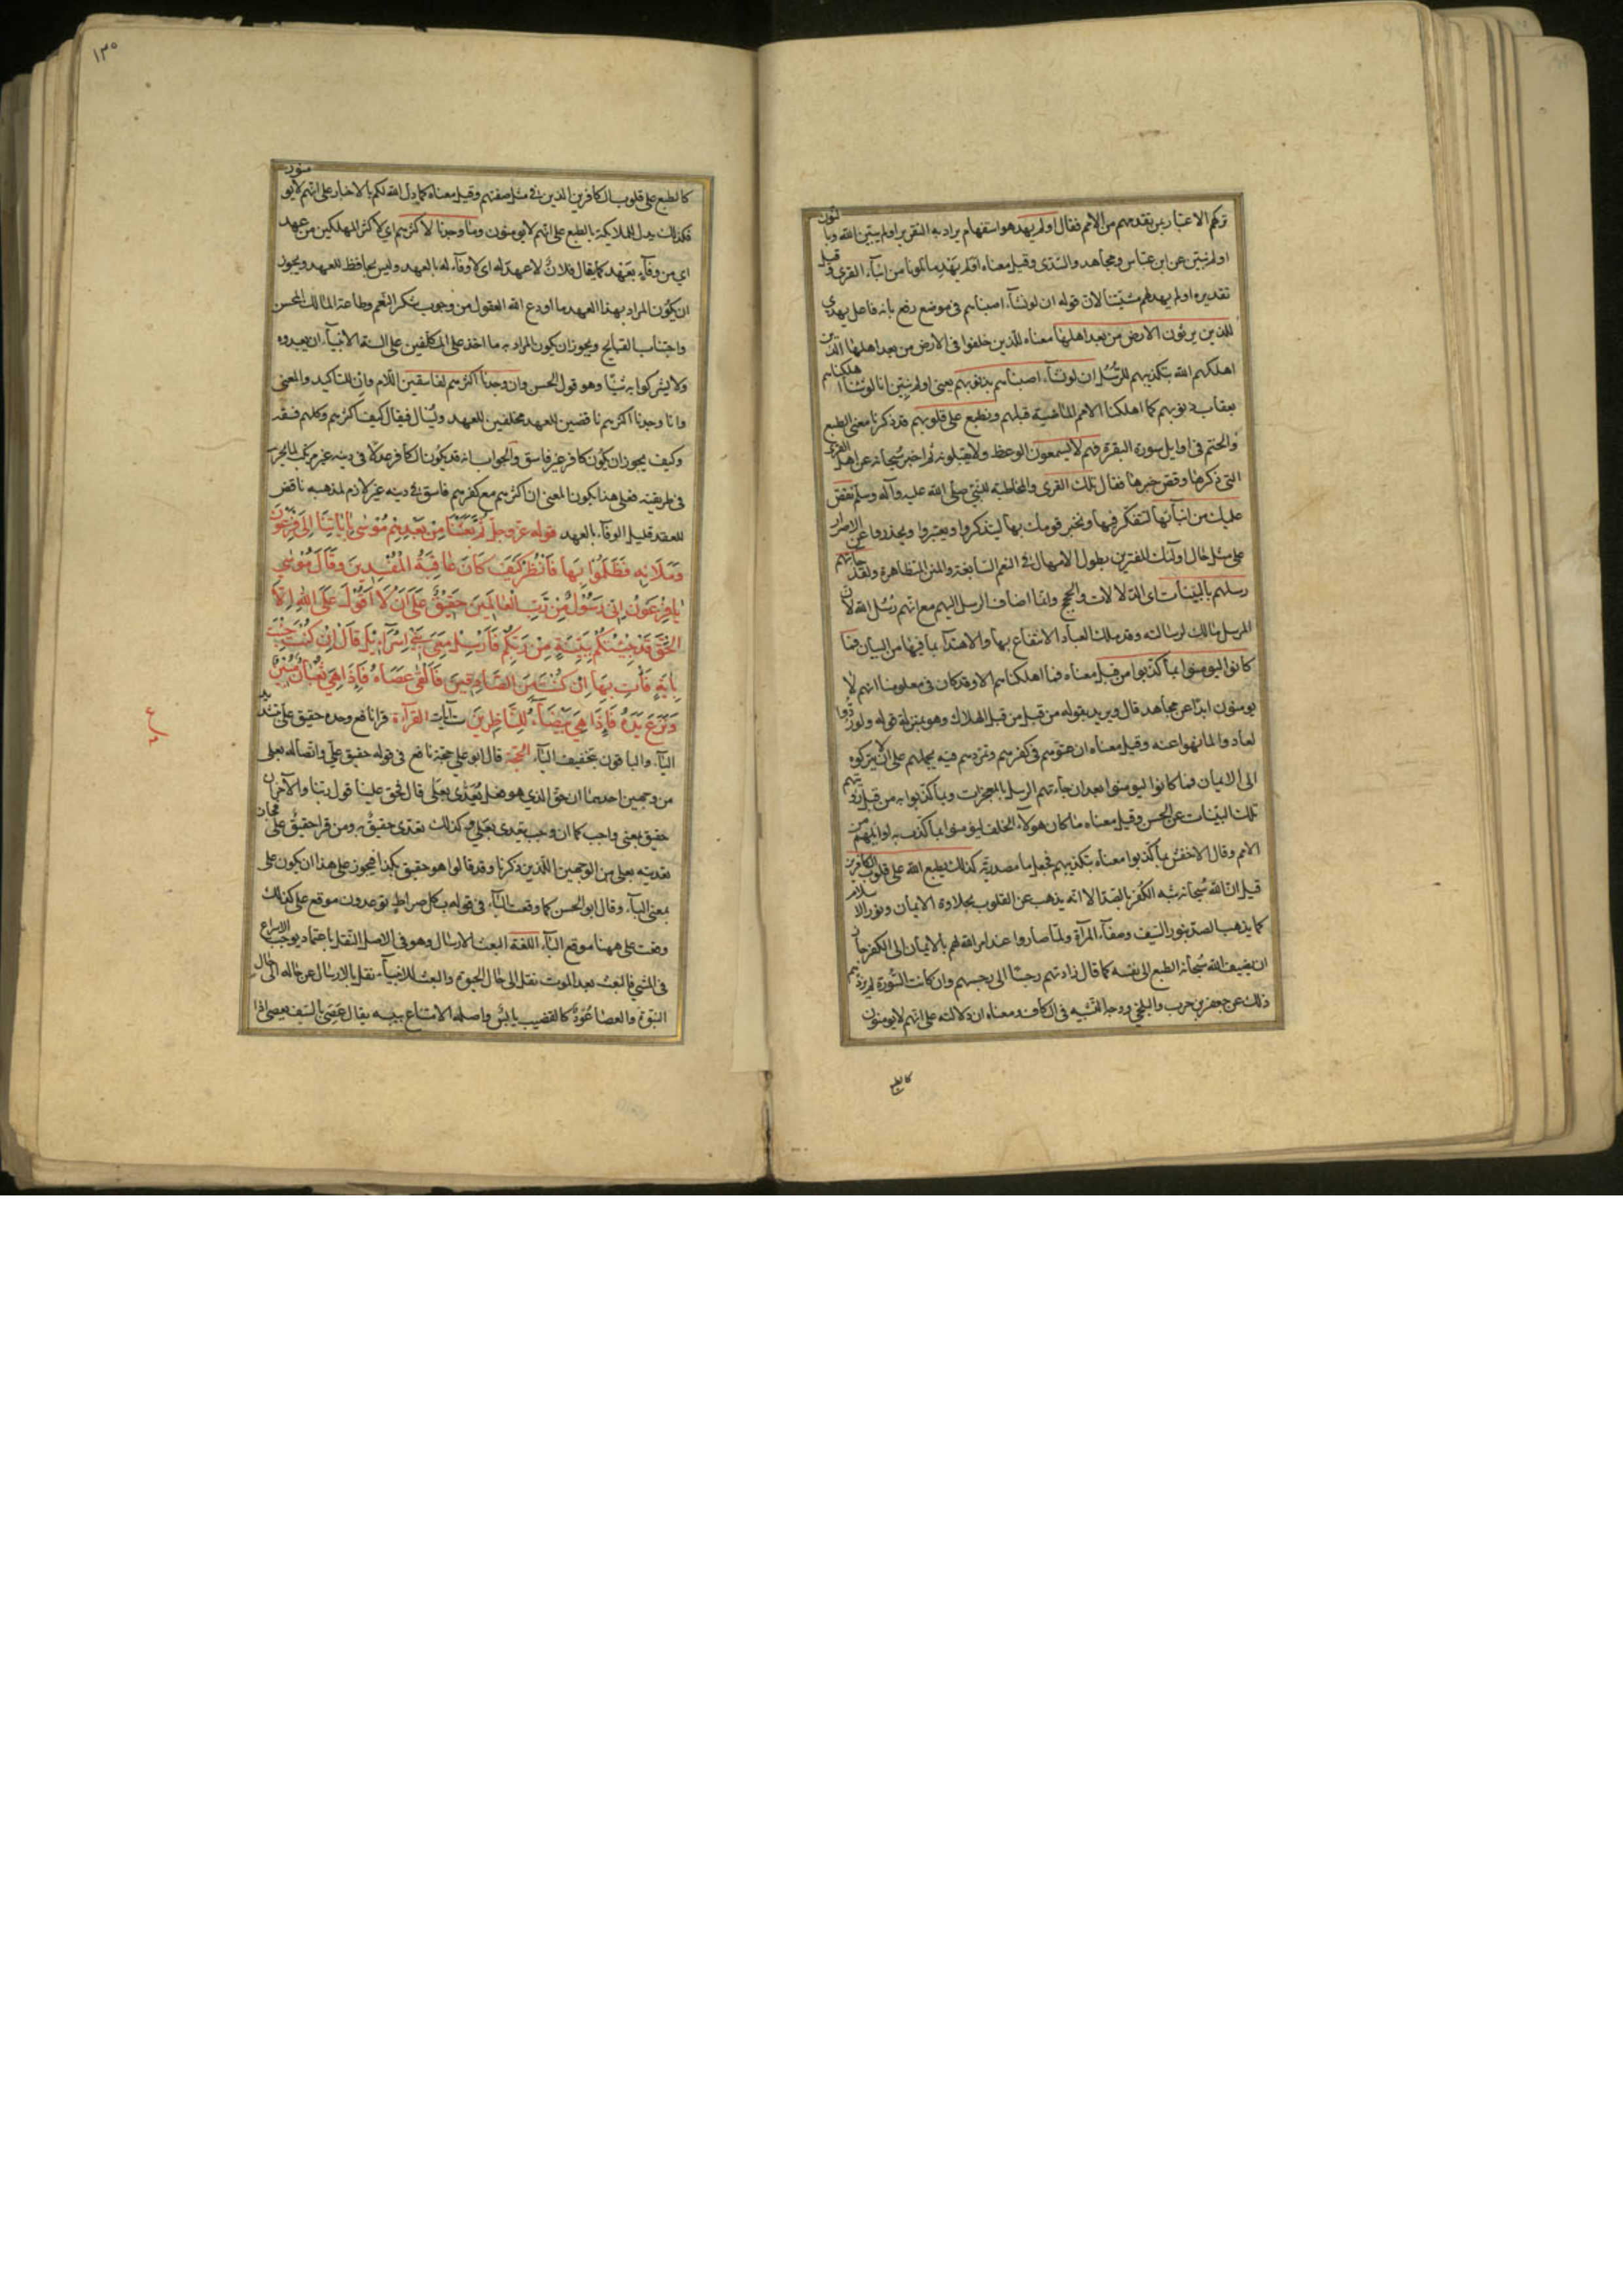 تركهم الاعتبار بمن تقدمهم من الامم فقال اولم يهد هو استفهام يراد به التقرير اولم يبين الله وبالنون
اولم نبين عن ابن عباس ومجاهد والسدى وقيل معناه اولم يهد ما تلونا من انباء القرى وقيل
تقديره اولم يهد لهم مشيتنا لان قوله ان لو نشاء اصبناهم فى موضع رفع بانه فاعل يهدي
للذين يرثون الارض من بعد اهلها معناه للذين خلفوا فى الارض من بعد اهلها الذين
اهلكهم الله بتكذيبهم للرسل ان لو نشاء اصبناهم بذنوبهم يعنى اولم نبين انا لو نشاء اهلكناهم
بعقاب ذنوبهم كما اهلكنا الامم الماضية قبلهم ونطبع على قلوبهم قد ذكرنا معنى الطبع
والختم فى اوايل سورة البقرة فهم لا يسمعون الوعظ ولا يقبلونه ثم اخبر سبحانه عن اهل القرى
التى ذكرها وقص خبرها فقال تلك القرى والمخاطبة للنبى صلى الله عليه وآله وسلم نقص
عليك من انبائها لتتفكر فيها وتخبر قومك بها ليتذكروا ويعتبروا ويحذروا عن الاصرار
على مثل حال اولئك المغترين بطول الامهال فى النعم السابغة والمنن المتظاهرة ولقد جائتهم
رسلهم بالبينات اى الدلالات والحجج وانما اضاف الرسل اليهم مع انهم رسل الله لان
المرسل مالك لرسالته وقد ملك العباد الانتفاع بها والاهتداء بما فيها من البيان فما
كانوا ليومنوا بما كذبوا من قبل معناه فما اهلكناهم الا وقد كان فى معلومنا انهم لا
يومنون ابدا عن مجاهد قال ويريد بقوله من قبل من قبل الهلاك وهو بمنزلة قوله ولو ردوا
لعادوا لما نهوا عنه وقيل معناه ان عتوهم فى كفرهم وتمردهم فيه يحملهم على ان لا يتركوه
الى الايمان فما كانوا ليومنوا بعد ان جاءتهم الرسل بالمعجزات وبما كذبوا به من قبل رويتهم
تلك البينات عن الحسن وقيل معناه ما كان هولاء الخلف ليومنوا بما كذب به اوائلهم من
الامم وقال الاخفش بما كذبوا معناه بتكذيبهم فجعل ما مصدرية كذلك يطبع الله على قلوب الكافرين
قيل ان الله سبحانه شبه الكفر بالصدا لانه يذهب عن القلوب بحلاوة الايمان ونور الاسلام
كما يذهب الصدا بنور السيف وصفاء المرآة ولما صاروا عند امر الله لهم بالايمان الى الكفر جاز
ان يضيف الله سبحانه الطبع الى نفسه كما قال زادتهم رجسا الى رجسهم وان كانت السورة لم تزدهم
ذلك عن جعفر بن حرب والبلخي ووجه التشبيه فى الكاف ومعناه ان دلالته على انهم لا يومنون
كالطبع
١٣٠
كالطبع على قلوب الكافرين الذين فى مثل صفتهم وقيل معناه كما دل الله لكم بالاخبار على انهم لا يومنون
فكذلك يدل الملايكة بالطبع على انهم لا يومنون وما وجدنا لاكثرهم اى لاكثر المهلكين من عهد
اى من وفاء بعهد كما يقال فلان لا عهد له اى لا وفاء له بالعهد وليس بحافظ للعهد ويجوز
ان يكون المراد بهذا العهد ما اودع الله العقول من وجوب شكر النعم وطاعة المالك المحسن
واجتناب القبايح ويجوز ان يكون المراد به ما اخذ على المكلفين على السنة الانبياء ان يعبدوه
ولا يشركوا به شيئا وهو قول الحسن وان وجدنا اكثرهم لفاسقين اللام وان للتاكيد والمعنى
وانا وجدنا اكثرهم ناقضين للعهد مخلفين للعهد ويسال فيقال كيف اكثرهم وكلهم فسقة
وكيف يجوز ان يكون كافر غير فاسق والجواب انه قد يكون الكافر عدلا فى دينه غير مرتكب لما يحرم
فى طريقته فعلى هذا يكون المعنى ان اكثرهم مع كفرهم فاسق فى دينه غير لازم لمذهبه ناقض
للعهد قليل الوفاء بالعهد قوله عز وجل ثُمَّ بَعَثْنَا مِنْ بَعْدِهِمْ مُوسَى بِاٰيَاتِنَا اِلَى فِرْعَوْنَ
وَمَلَائِهِ فَظَلَمُوا بِهَا فَانْظُرْ كَيْفَ كَانَ عَاقِبَةُ الْمُفْسِدِينَ وَقَالَ مُوسَى
يَا فِرْعَوْنُ اِنِّى رَسُولٌ مِنْ رَبِّ الْعَالَمِينَ حَقِيقٌ عَلَى اَنْ لَا اَقُولَ عَلَى اللهِ اِلَّا
الْحَقَّ قَدْ جِئْتُكُمْ بِبَيِّنَةٍ مِنْ رَبِّكُمْ فَاَرْسِلْ مَعِىَ بَنِى اِسْرَائِيلَ قَالَ اِنْ كُنْتَ جِئْتَ
بِاٰيَةٍ فَأْتِ بِهَا اِنْ كُنْتَ مِنَ الصَّادِقِينَ فَاَلْقَى عَصَاهُ فَاِذَا هِىَ ثُعْبَانٌ مُبِينٌ
وَنَزَعَ يَدَهُ فَاِذَا هِىَ بَيْضَاءُ لِلنَّاظِرِينَ آيات القراءة قرا نافع وحده حقيق علىّ بتشديد
الياء والباقون بتخفيف الياء الحجة قال ابو على حجة نافع فى قوله حقيق علىّ واتصاله بعلى
من وجهين احدهما ان حق الذى هو فعل يعدى بعلى قال فحق علينا قول ربنا والآخر ان
حقيق بمعنى واجب كما ان وجب يتعدى بعلى فكذلك تعدى حقيق به ومن قرا حقيق على فجاز
تعديته بعلى من الوجهين اللذين ذكرنا وقد قالوا هو حقيق بكذا فيجوز على هذا ان يكون على
بمعنى الباء وقال ابو الحسن كما وقعت الباء فى قوله بكل صراط توعدون موقع على كذلك
وقعت على ههنا موقع الباء اللغة البعث الارسال وهو فى الاصل النقل باعتماد يوجب الاسراع
فى المشي فالبعث بعد الموت نقل الى حال الحيوة والبعث للانبياء نقل بالارسال عن حاله الى حال
النبوة والعصا عود كالقضيب يابس واصله الامتناع بيبسه يقال عصى بالسيف يعصى اذا